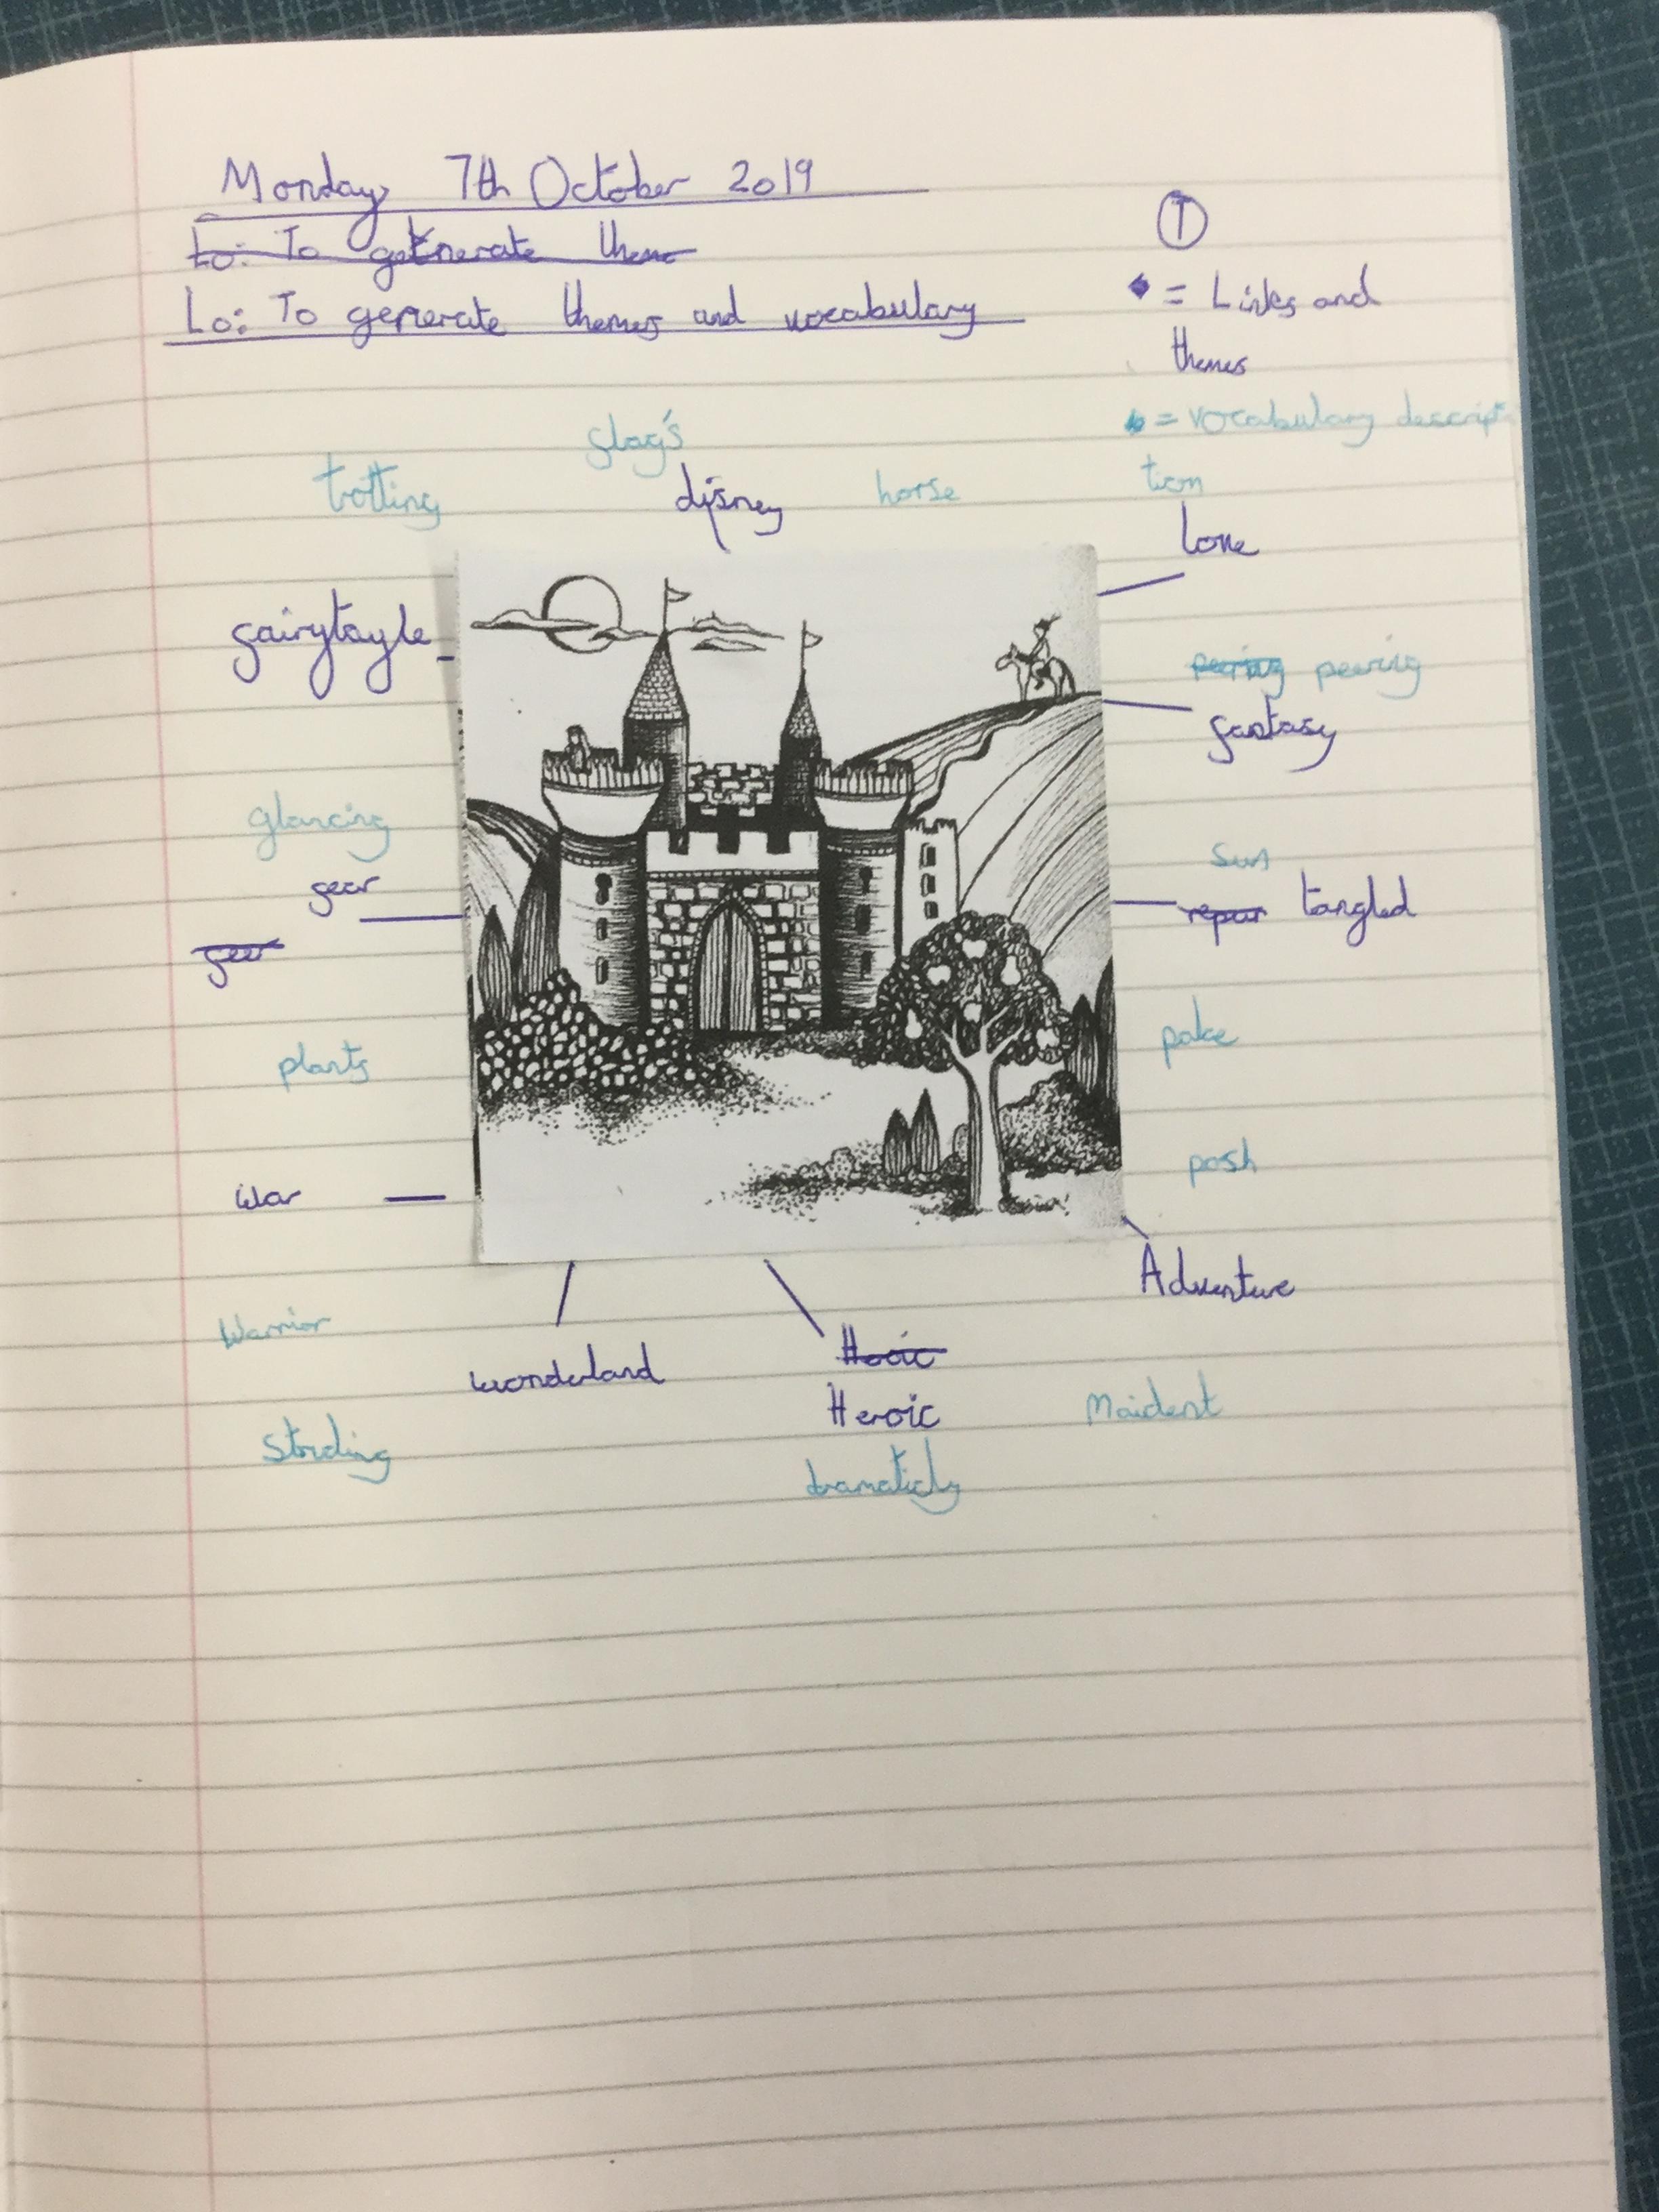 Monday 7th October 2019
Lo: To generate theme
Lo: To generate themes and vocabulary
T
= Links and
themes
= vocabulary descrip
tion
flag's
trotting
disney
horse
love
fairytayle
peering peering
fantasy
glancing
sun
fear
tangled
fear
plants
posh
war
Adventure
Warrior
wonderland
Heroic
Heroic
Maident
Striding
dramaticly